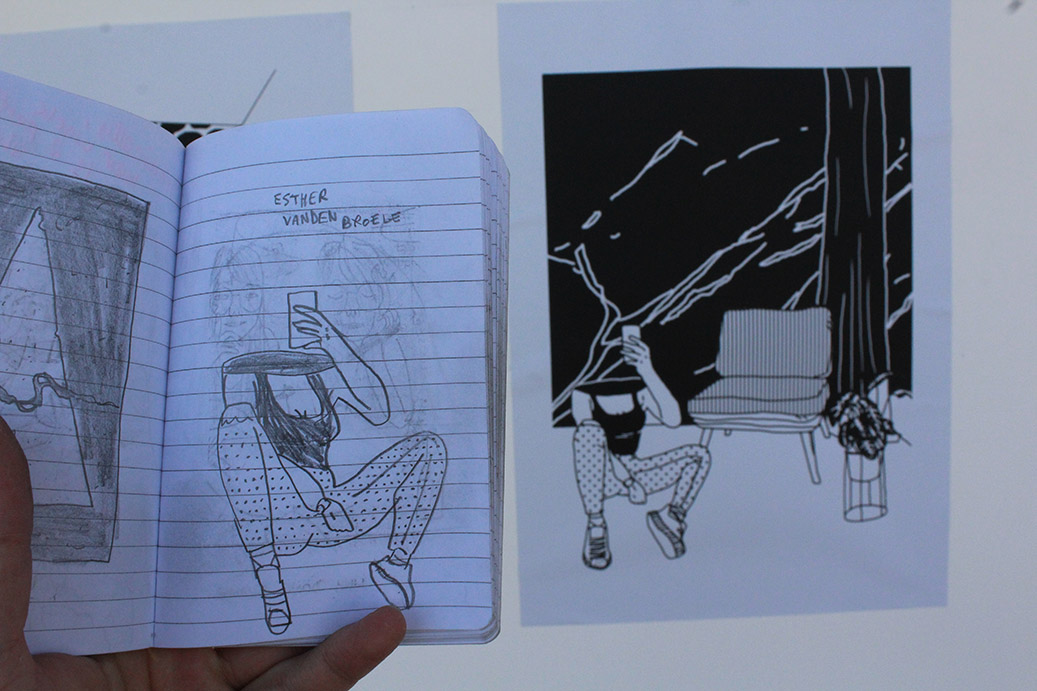 ESTHER
VANDEN BROELE